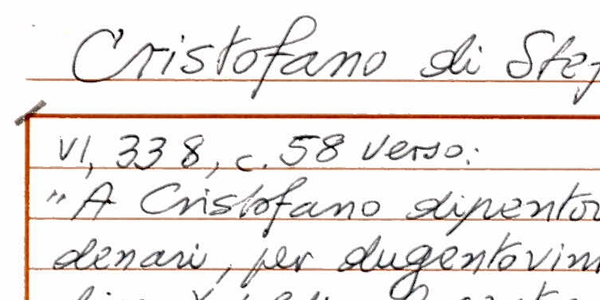 Cristofano di Stef
VI, 338, c. 58 verso:
"A Cristofano dipentor
denari, per dugentovin